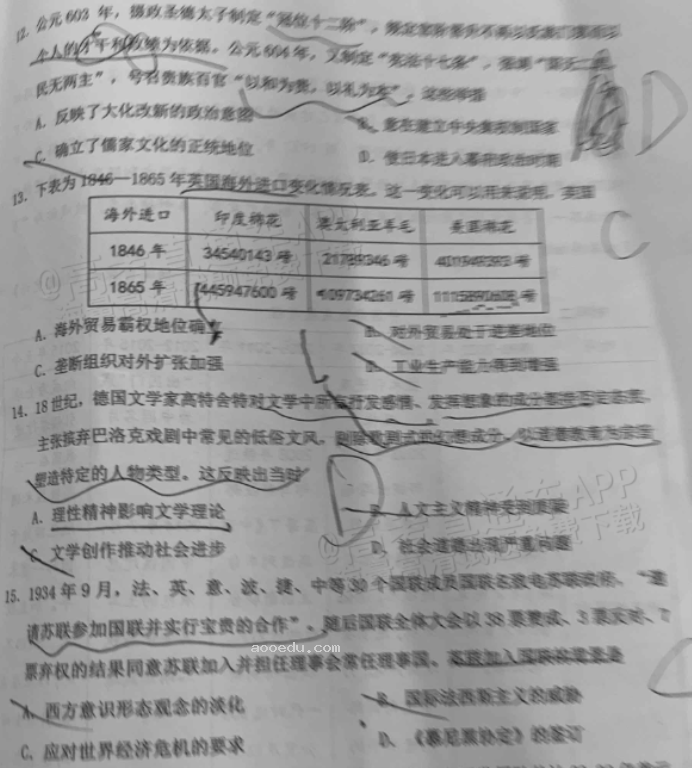 12. 公元603年，摄政圣德太子制定“冠位十二阶”，
个人的才干和政绩为依据。公元604年，又制定“宪法十七条”，强调“国无二
民无两主”，号召贵族百官“以和为贵，以礼为本”。这些举措
A. 反映了大化改新的政治意图
B. 意在建立中央集权制国家
C. 确立了儒家文化的正统地位
D. 使日本进入幕府统治时期
13. 下表为1846—1865年英国海外进口变化情况表。这一变化可以用来说明，英国
海外进口 印度棉花 澳大利亚羊毛 美国棉花
1846年 34540143磅 21789346磅
1865年 445947600磅 109734261磅
A. 海外贸易霸权地位确立
B. 对外贸易处于逆差地位
C. 垄断组织对外扩张加强
D. 工业生产能力得到增强
14. 18世纪，德国文学家高特舍特对文学中所有抒发感情、发挥想象的成分都持否定态度，
主张摈弃巴洛克戏剧中常见的低俗文风，剔除歌剧式的幻想成分，以道德教育为宗旨
塑造特定的人物类型。这反映出当时
A. 理性精神影响文学理论
B. 人文主义精神受到质疑
C. 文学创作推动社会进步
D. 社会道德出现严重问题
15. 1934年9月，法、英、意、波、捷、中等30个国联成员国联名致电苏联政府，“邀
请苏联参加国联并实行宝贵的合作”。随后国联全体大会以38票赞成、3票反对、7
票弃权的结果同意苏联加入并担任理事会常任理事国。苏联加入国联
A. 西方意识形态观念的淡化
B. 国际法西斯主义的威胁
C. 应对世界经济危机的要求
D. 《慕尼黑协定》的签订
D
C
D
@高考直通车APP
aooedu.com